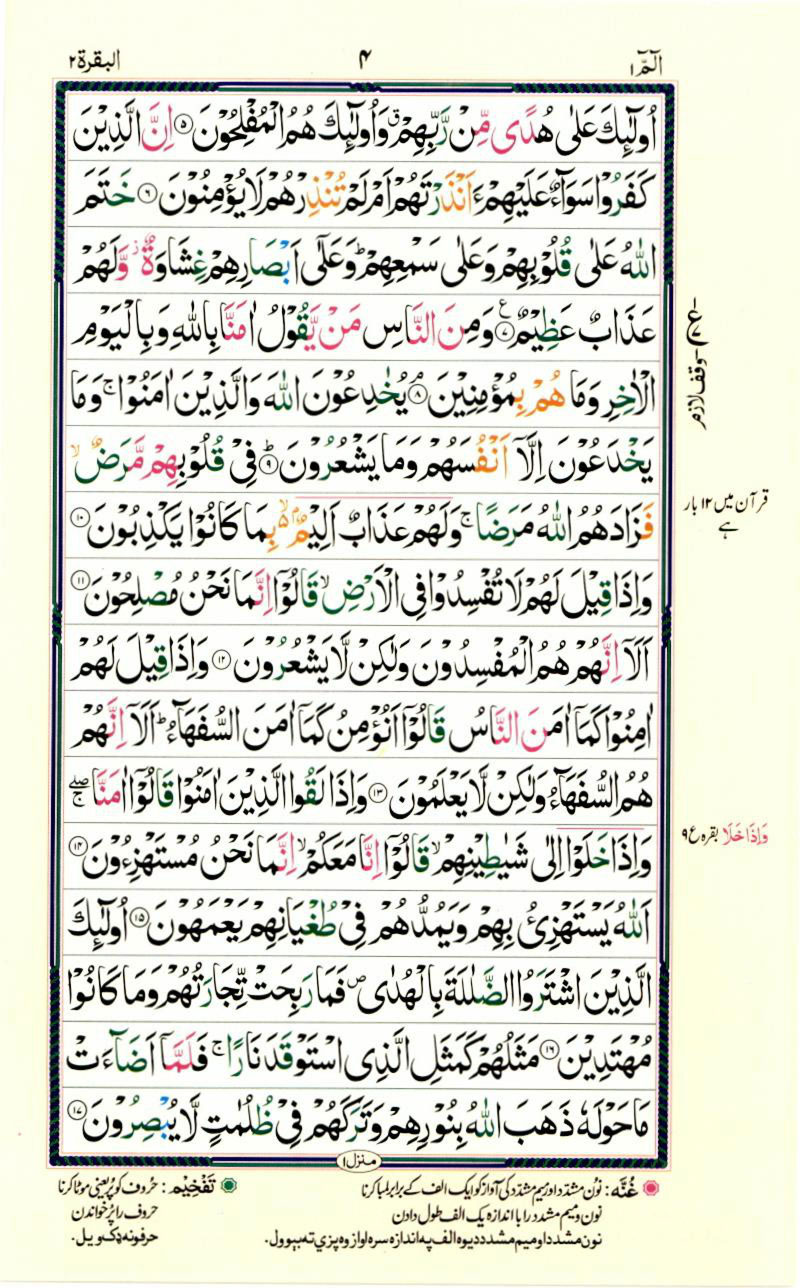 الٓمّٓ ۱
۴
البقرة ۲
اُولٰٓئِكَ عَلٰی هُدًی مِّنْ رَّبِّهِمْ ۗ وَاُولٰٓئِكَ هُمُ الْمُفْلِحُوْنَ ۝۵ اِنَّ الَّذِیْنَ
كَفَرُوْا سَوَآءٌ عَلَیْهِمْ ءَاَنْذَرْتَهُمْ اَمْ لَمْ تُنْذِرْهُمْ لَا یُؤْمِنُوْنَ ۝۶ خَتَمَ
اللّٰهُ عَلٰی قُلُوْبِهِمْ وَعَلٰی سَمْعِهِمْ ؕ وَعَلٰۤی اَبْصَارِهِمْ غِشَاوَةٌ ؗ وَّلَهُمْ
عَذَابٌ عَظِیْمٌ ۝۷ وَمِنَ النَّاسِ مَنْ یَّقُوْلُ اٰمَنَّا بِاللّٰهِ وَبِالْیَوْمِ
الْاٰخِرِ وَمَا هُمْ بِمُؤْمِنِیْنَ ۝۸ یُخٰدِعُوْنَ اللّٰهَ وَالَّذِیْنَ اٰمَنُوْا ۚ وَمَا
یَخْدَعُوْنَ اِلَّاۤ اَنْفُسَهُمْ وَمَا یَشْعُرُوْنَ ۝۹ فِیْ قُلُوْبِهِمْ مَّرَضٌ ۙ
فَزَادَهُمُ اللّٰهُ مَرَضًا ۚ وَلَهُمْ عَذَابٌ اَلِیْمٌۢ ۙ بِمَا كَانُوْا یَكْذِبُوْنَ ۝۱۰
وَاِذَا قِیْلَ لَهُمْ لَا تُفْسِدُوْا فِی الْاَرْضِ ۙ قَالُوْۤا اِنَّمَا نَحْنُ مُصْلِحُوْنَ ۝۱۱
اَلَاۤ اِنَّهُمْ هُمُ الْمُفْسِدُوْنَ وَلٰكِنْ لَّا یَشْعُرُوْنَ ۝۱۲ وَاِذَا قِیْلَ لَهُمْ
اٰمِنُوْا كَمَاۤ اٰمَنَ النَّاسُ قَالُوْۤا اَنُؤْمِنُ كَمَاۤ اٰمَنَ السُّفَهَآءُ ؕ اَلَاۤ اِنَّهُمْ
هُمُ السُّفَهَآءُ وَلٰكِنْ لَّا یَعْلَمُوْنَ ۝۱۳ وَاِذَا لَقُوا الَّذِیْنَ اٰمَنُوْا قَالُوْۤا اٰمَنَّا ۖۚ
وَاِذَا خَلَوْا اِلٰی شَیٰطِیْنِهِمْ ۙ قَالُوْۤا اِنَّا مَعَكُمْ ۙ اِنَّمَا نَحْنُ مُسْتَهْزِءُوْنَ ۝۱۴
اَللّٰهُ یَسْتَهْزِئُ بِهِمْ وَیَمُدُّهُمْ فِیْ طُغْیَانِهِمْ یَعْمَهُوْنَ ۝۱۵ اُولٰٓئِكَ
الَّذِیْنَ اشْتَرَوُا الضَّلٰلَةَ بِالْهُدٰی ۪ فَمَا رَبِحَتْ تِّجَارَتُهُمْ وَمَا كَانُوْا
مُهْتَدِیْنَ ۝۱۶ مَثَلُهُمْ كَمَثَلِ الَّذِی اسْتَوْقَدَ نَارًا ۚ فَلَمَّاۤ اَضَآءَتْ
مَا حَوْلَهٗ ذَهَبَ اللّٰهُ بِنُوْرِهِمْ وَتَرَكَهُمْ فِیْ ظُلُمٰتٍ لَّا یُبْصِرُوْنَ ۝۱۷
وقف لازم
قرآن میں ۱۲ بار
ہے
وَاِذَا خَلَا بقرہ ع ۹
منزل ۱
غُنَّه: نون مشدد اور میم مشدد کی آواز کو ایک الف کے برابر لمبا کرنا
نون و میم مشدد را با اندازه یک الف طول دادن
نون مشدد او میم مشدد د یوه الف په اندازه سره اواز وه پزې ته بېوول.
تَفْخِیْم: حروف کو پُر یعنی موٹا کرنا
حروف را پُر خواندن
حرفونه ډک ویل.